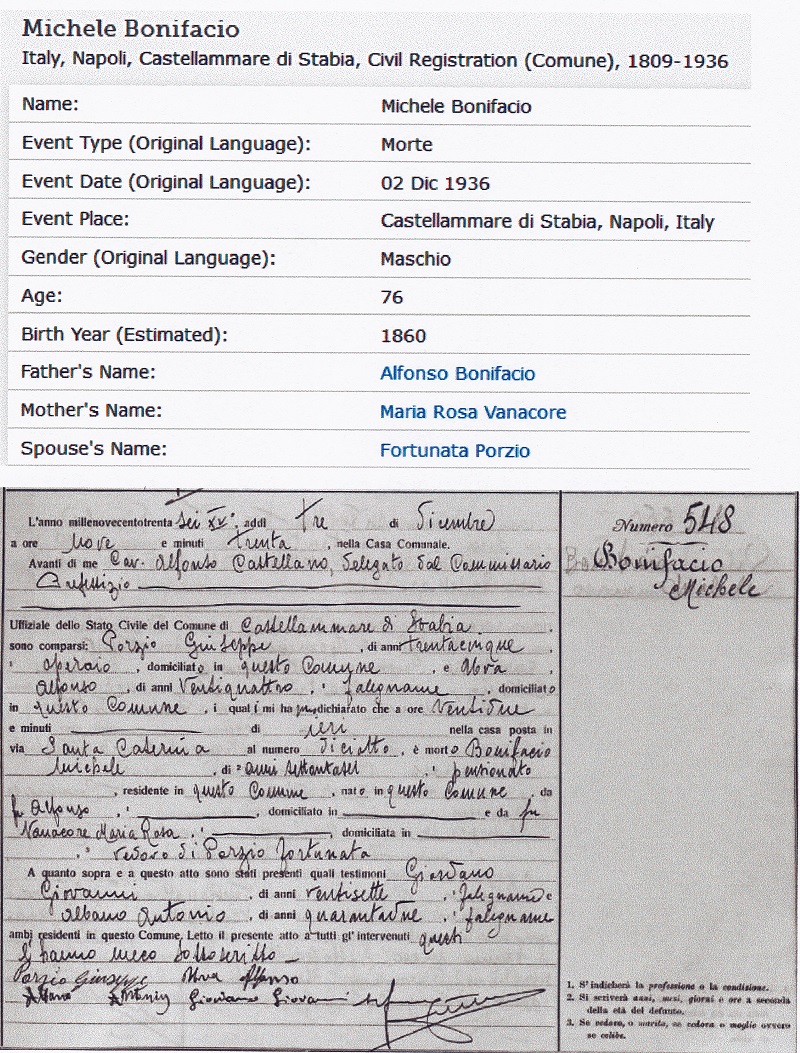 Michele Bonifacio
Italy, Napoli, Castellammare di Stabia, Civil Registration (Comune), 1809-1936
Name: Michele Bonifacio
Event Type (Original Language): Morte
Event Date (Original Language): 02 Dic 1936
Event Place: Castellammare di Stabia, Napoli, Italy
Gender (Original Language): Maschio
Age: 76
Birth Year (Estimated): 1860
Father's Name: Alfonso Bonifacio
Mother's Name: Maria Rosa Vanacore
Spouse's Name: Fortunata Porzio
L'anno millenovecentotrenta sei XV°, addì tre di Dicembre
a ore Nove e minuti trenta, nella Casa Comunale.
Avanti di me Cav. Alfonso Castellano, Delegato dal Commissario
Prefettizio
Uffiziale dello Stato Civile del Comune di Castellammare di Stabia.
sono comparsi: Porzio Giuseppe, di anni trentacinque,
operaio, domiciliato in questo Comune, e
Alfonso, di anni Ventiquattro, falegname, domiciliato
in questo Comune, i quali mi ha dichiarato che a ore Ventidue
e minuti di ieri nella casa posta in
via Santa Caterina al numero diciotto, è morto Bonifacio
Michele, di anni settantasei, pensionato
, residente in questo Comune, nato in questo Comune, da
fu Alfonso, domiciliato in e da fu
Vanacore Maria Rosa, domiciliata in
vedovo di Porzio Fortunata
A quanto sopra e a questo atto sono stati presenti quali testimoni Giordano
Giovanni, di anni ventisette, falegname e
Albano Antonio, di anni quarantadue, falegname
ambi residenti in questo Comune. Letto il presente atto a tutti gl' intervenuti questi
l'hanno meco sottoscritto
Porzio Giuseppe Alfonso
Antonio Giordano Giovanni
Numero 548
Bonifacio
Michele
1. S' indicherà la professione o la condizione.
2. Si scriverà anni, mesi, giorni e ore a seconda
della età del defunto.
3. Se vedovo, o marito, se vedova o moglie ovvero
se celibe.